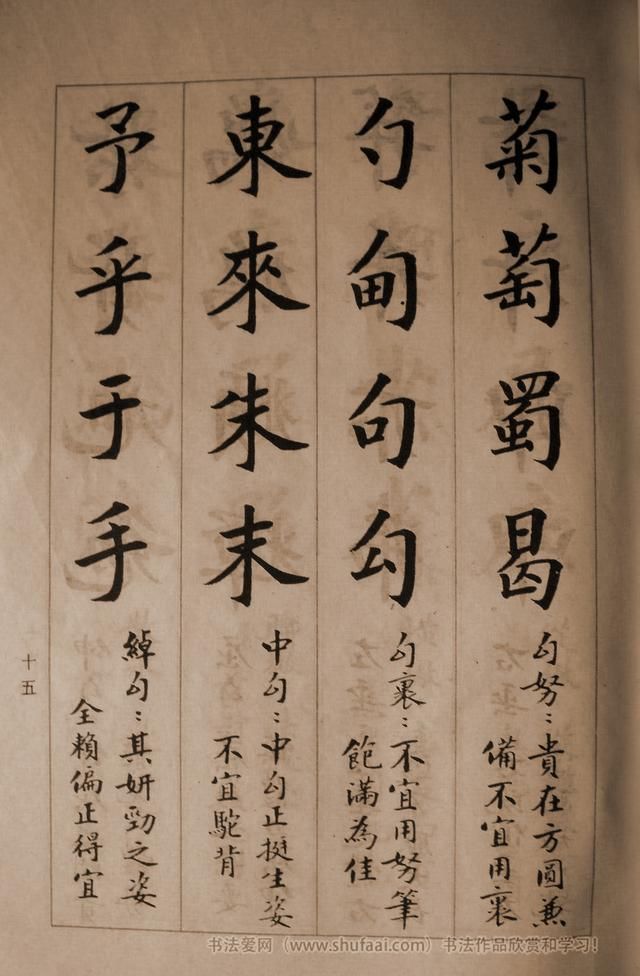 菊萄蜀曷
勾努：貴在方圓兼
備不宜用裹
勺甸句勾
勾裹：不宜用努筆
飽滿為佳
東來朱末
中勾：中勾正挺生姿
不宜駝背
予乎于手
綽勾：其妍勁之姿
全賴偏正得宜
十五
书法爱网（www.shufaai.com）书法作品欣赏和学习！